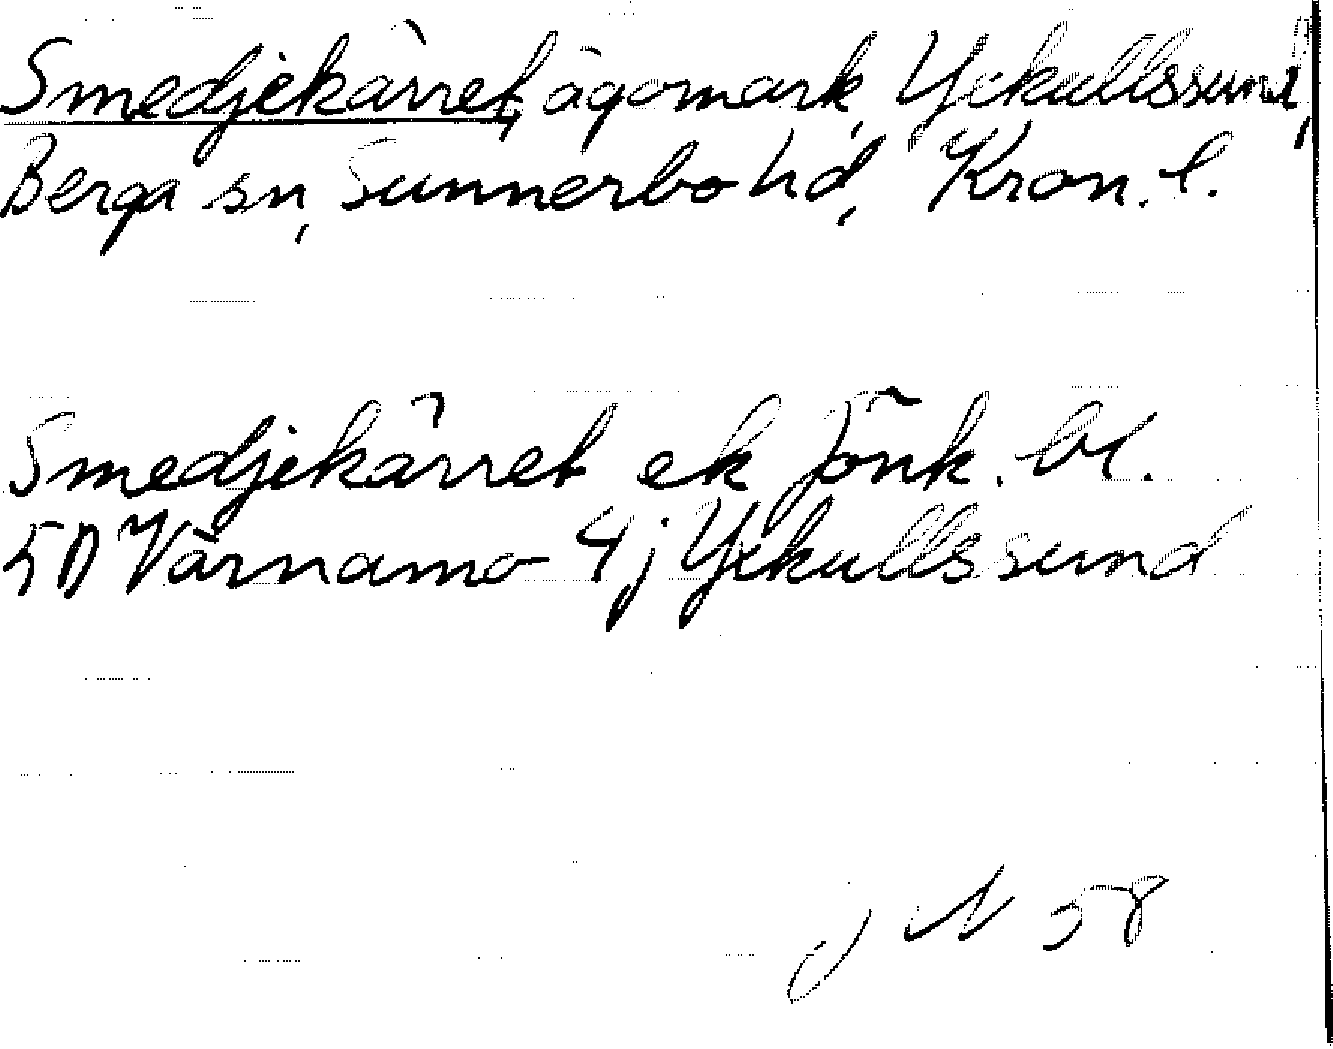 Smedjekärret, ägomark, Yxkullssund,
Berga sn, Sunnerbo hd, Kron. l.
Smedjekärret ek Jönk. bl.
5D Värnamo 4j Yxkullssund
58